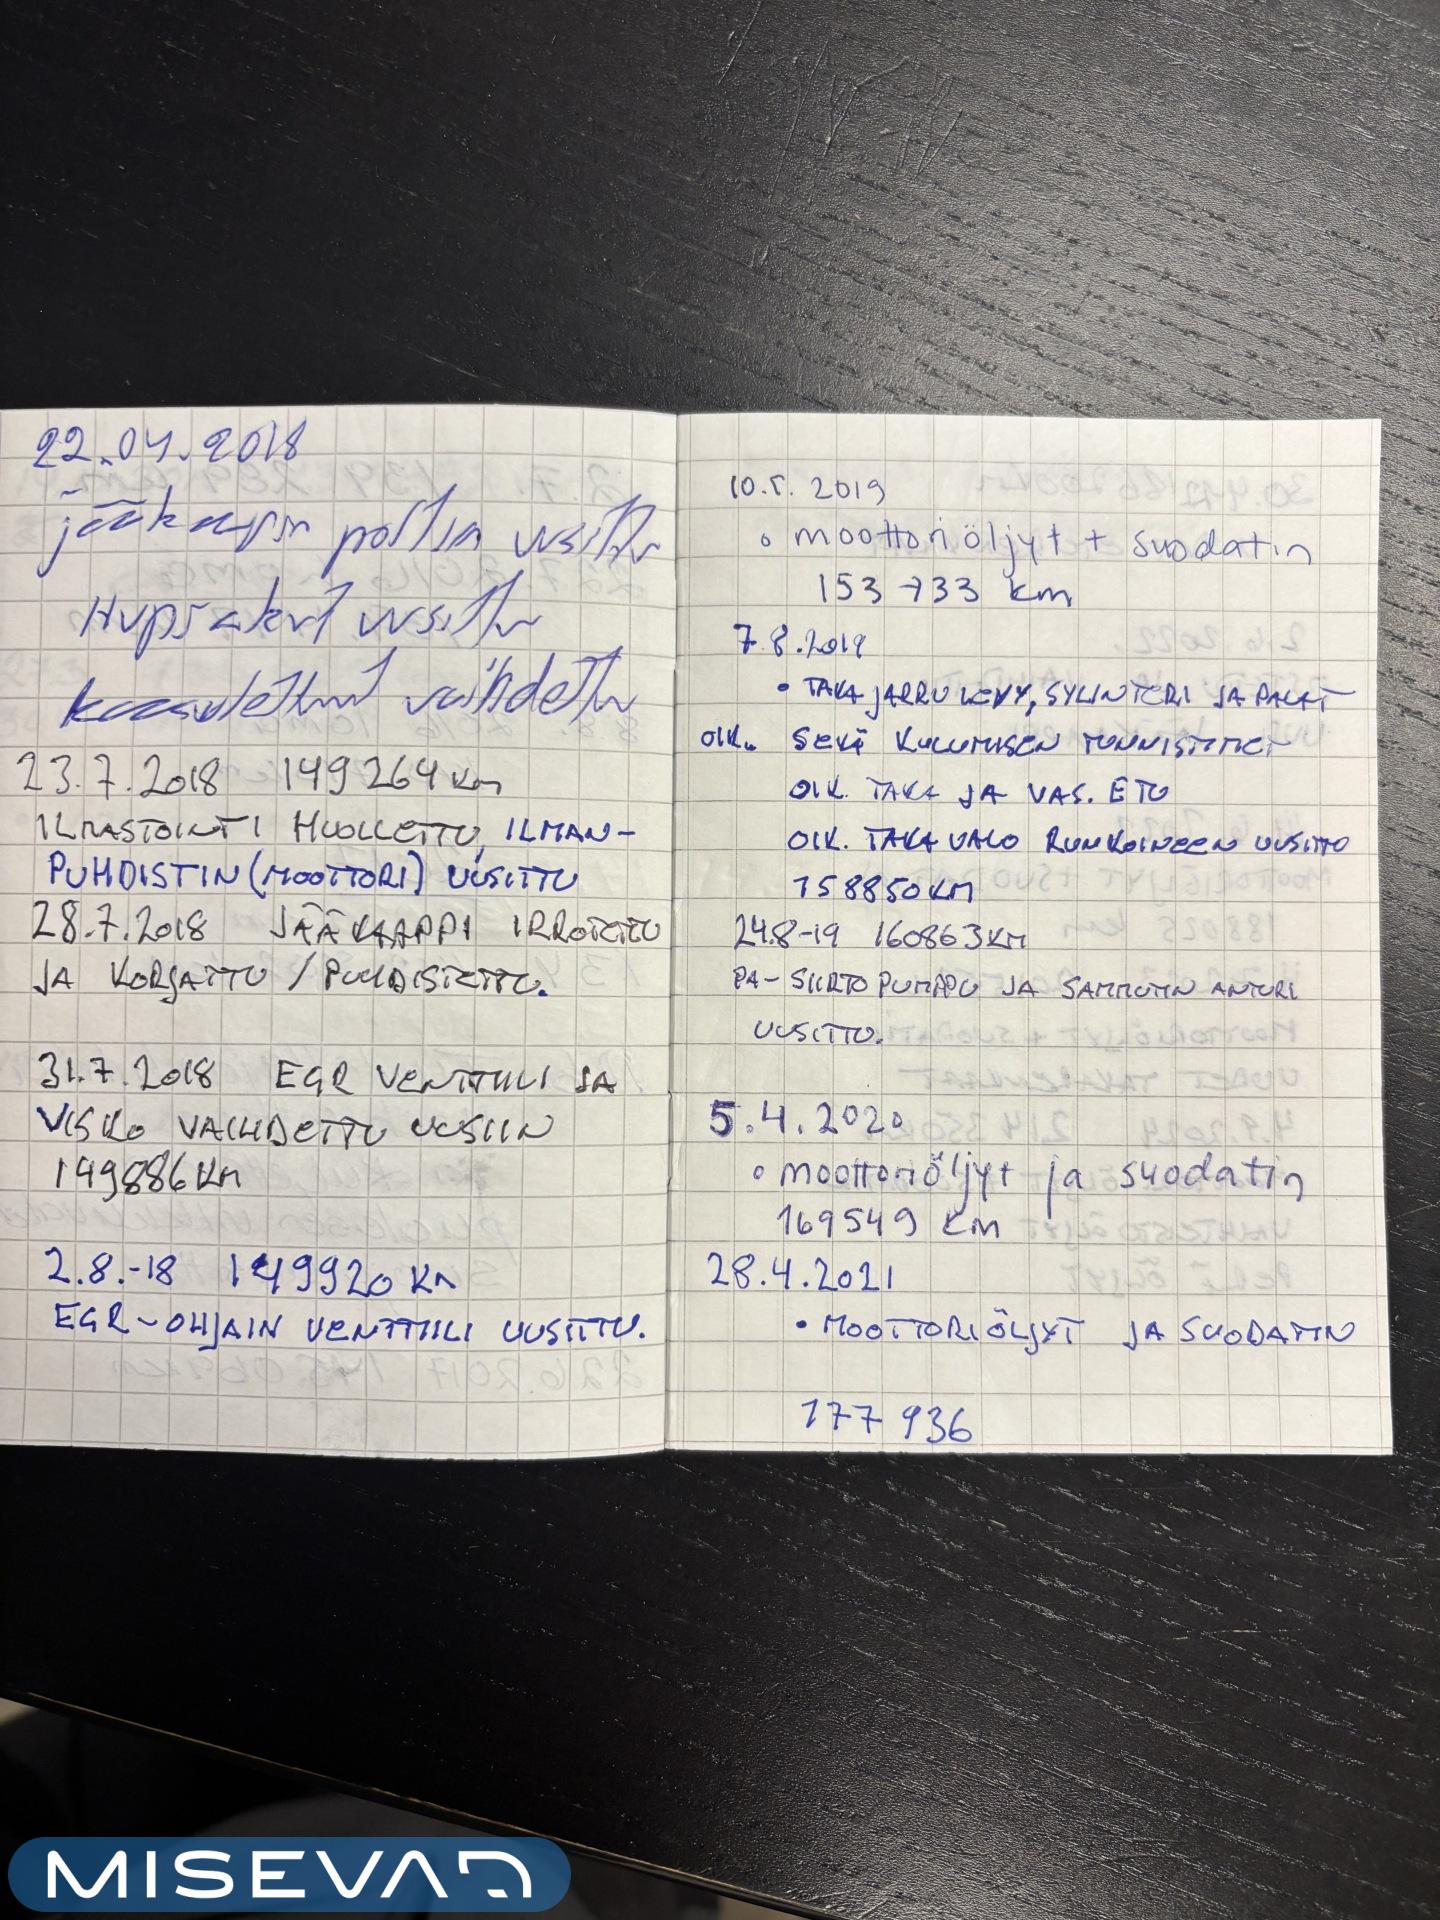 22.04.2018
jääkaapin poltin uusittu
uusittu
kaasuletkut vaihdettu
23.7.2018 149264 km
ILMASTOINTI HUOLLETTU, ILMAN-
PUHDISTIN (MOOTTORI) UUSITTU
28.7.2018 JÄÄKAAPPI IRROTETTU
JA KORJATTU / PUHDISTETTU.
31.7.2018 EGR VENTTIILI JA
VISKO VAIHDETTU UUSIIN
149886 KM
2.8.-18 149920 KM
EGR-OHJAIN VENTTIILI UUSITTU.
10.5. 2019
• moottoriöljyt + suodatin
153 733 km
7.8.2019
• TAKAJARRULEVY, SYLINTERI JA PALAT
OIK. SEKÄ KULUMISEN TUNNISTIMET
OIK. TAKA JA VAS. ETU
OIK. TAKAVALO RUNKOINEEN UUSITTU
158850 KM
24.8-19 160863 KM
PA-SIIRTOPUMPPU JA SAMMUTIN ANTURI
UUSITTU.
5.4.2020
• moottoriöljyt ja suodatin
169549 KM
28.4.2021
• MOOTTORIÖLJYT JA SUODATIN
177 936
MISEVAD